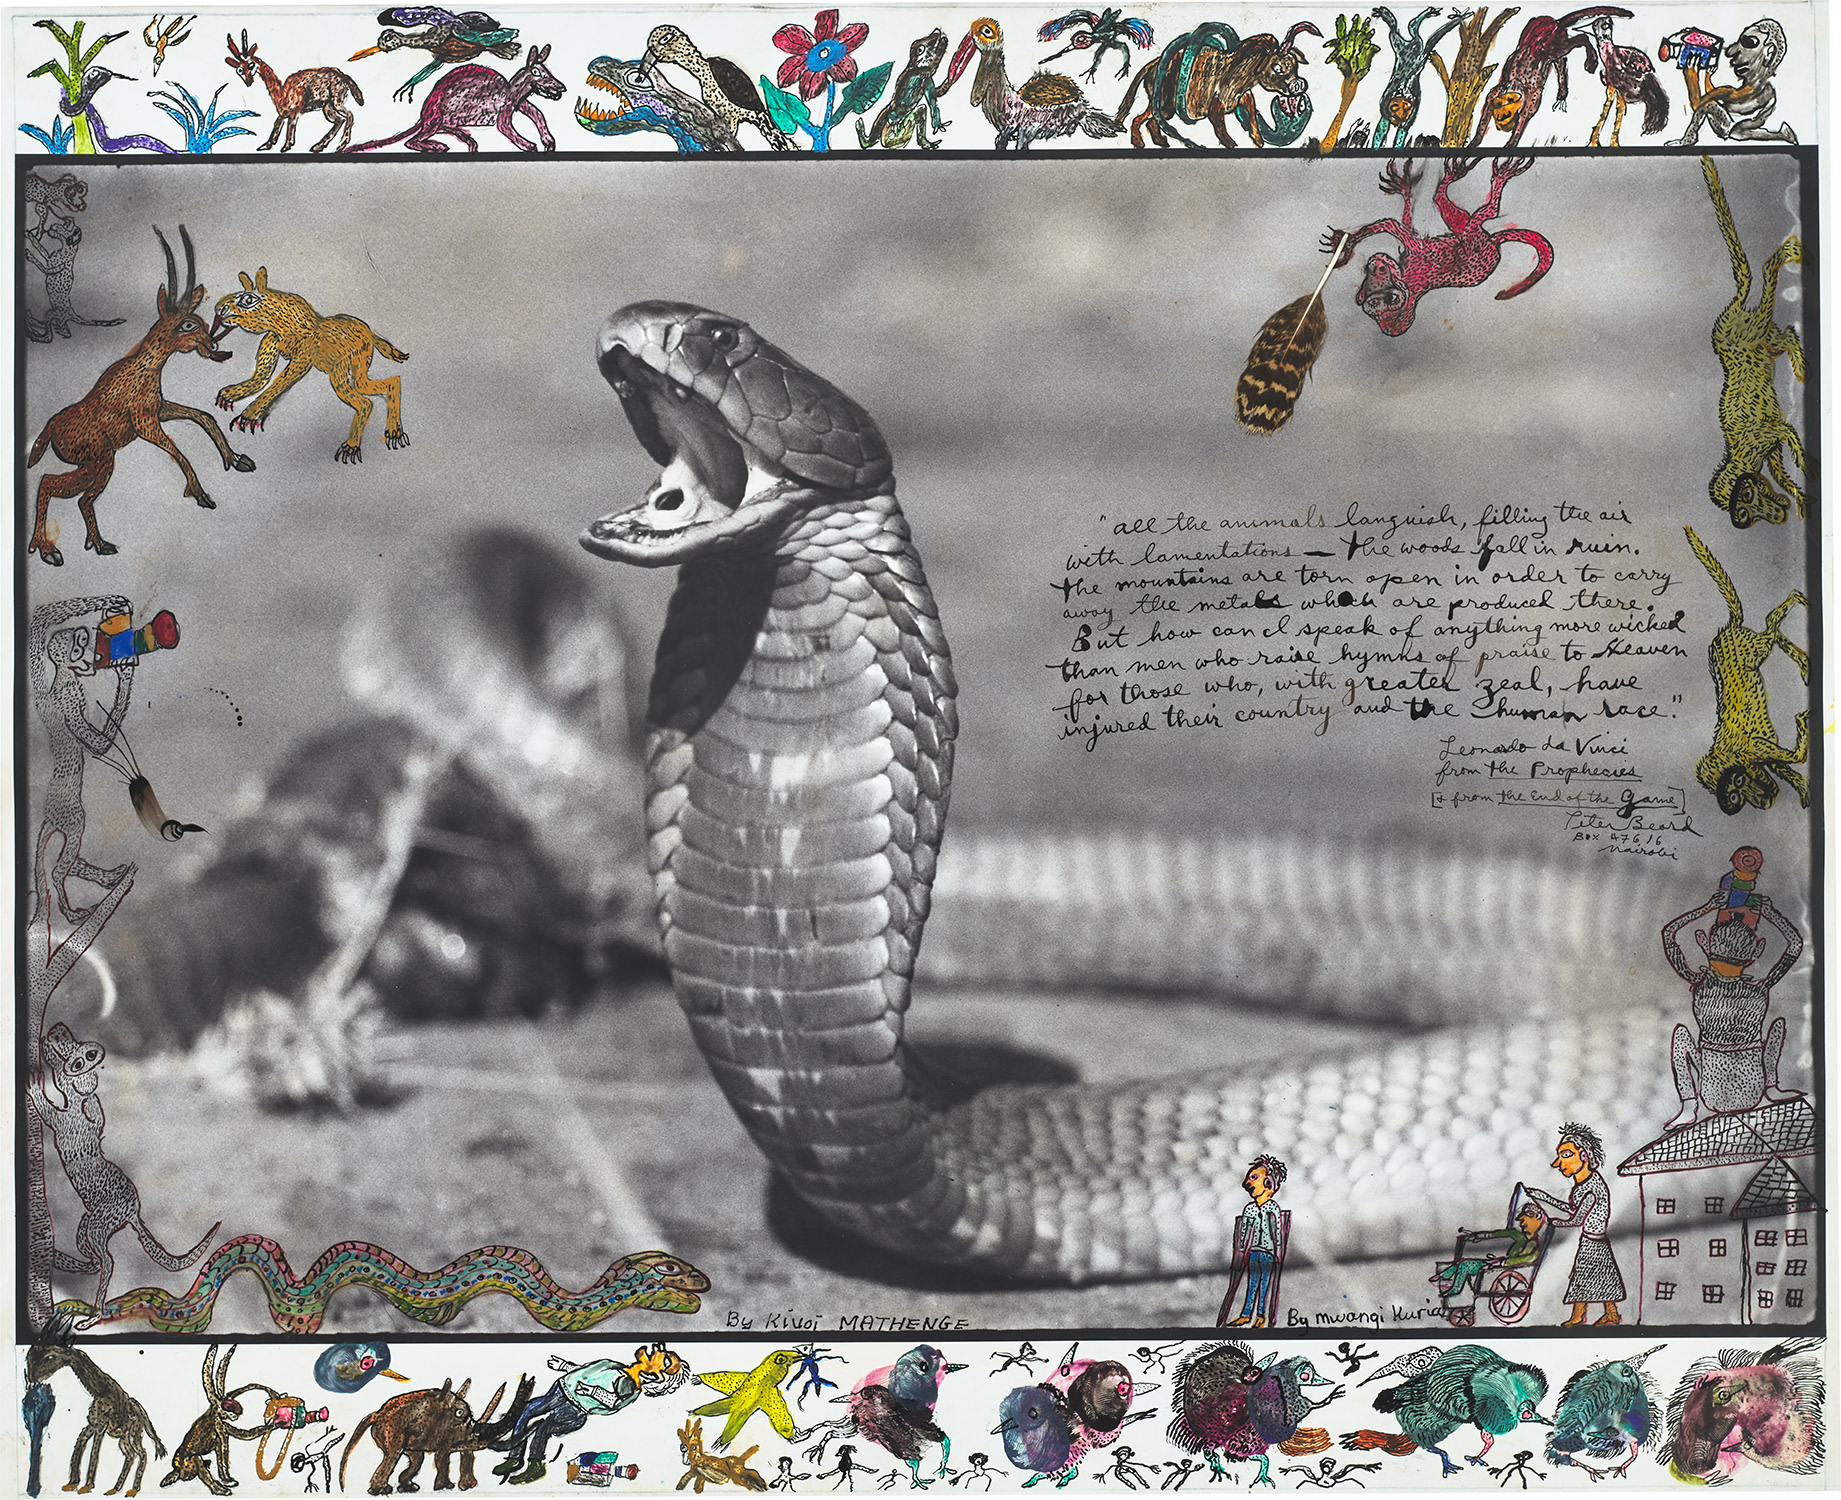 "all the animals languish, filling the air
with lamentations — The woods fall in ruin.
The mountains are torn open in order to carry
away the metals which are produced there.
But how can I speak of anything more wicked
than men who raise hymns of praise to Heaven
for those who, with greater zeal, have
injured their country and the human race."
Leonardo da Vinci
from the Prophecies
[& from the End of the Game]
Peter Beard
Box 47616
Nairobi
By Kivoi MATHENGE
By mwangi Kuria